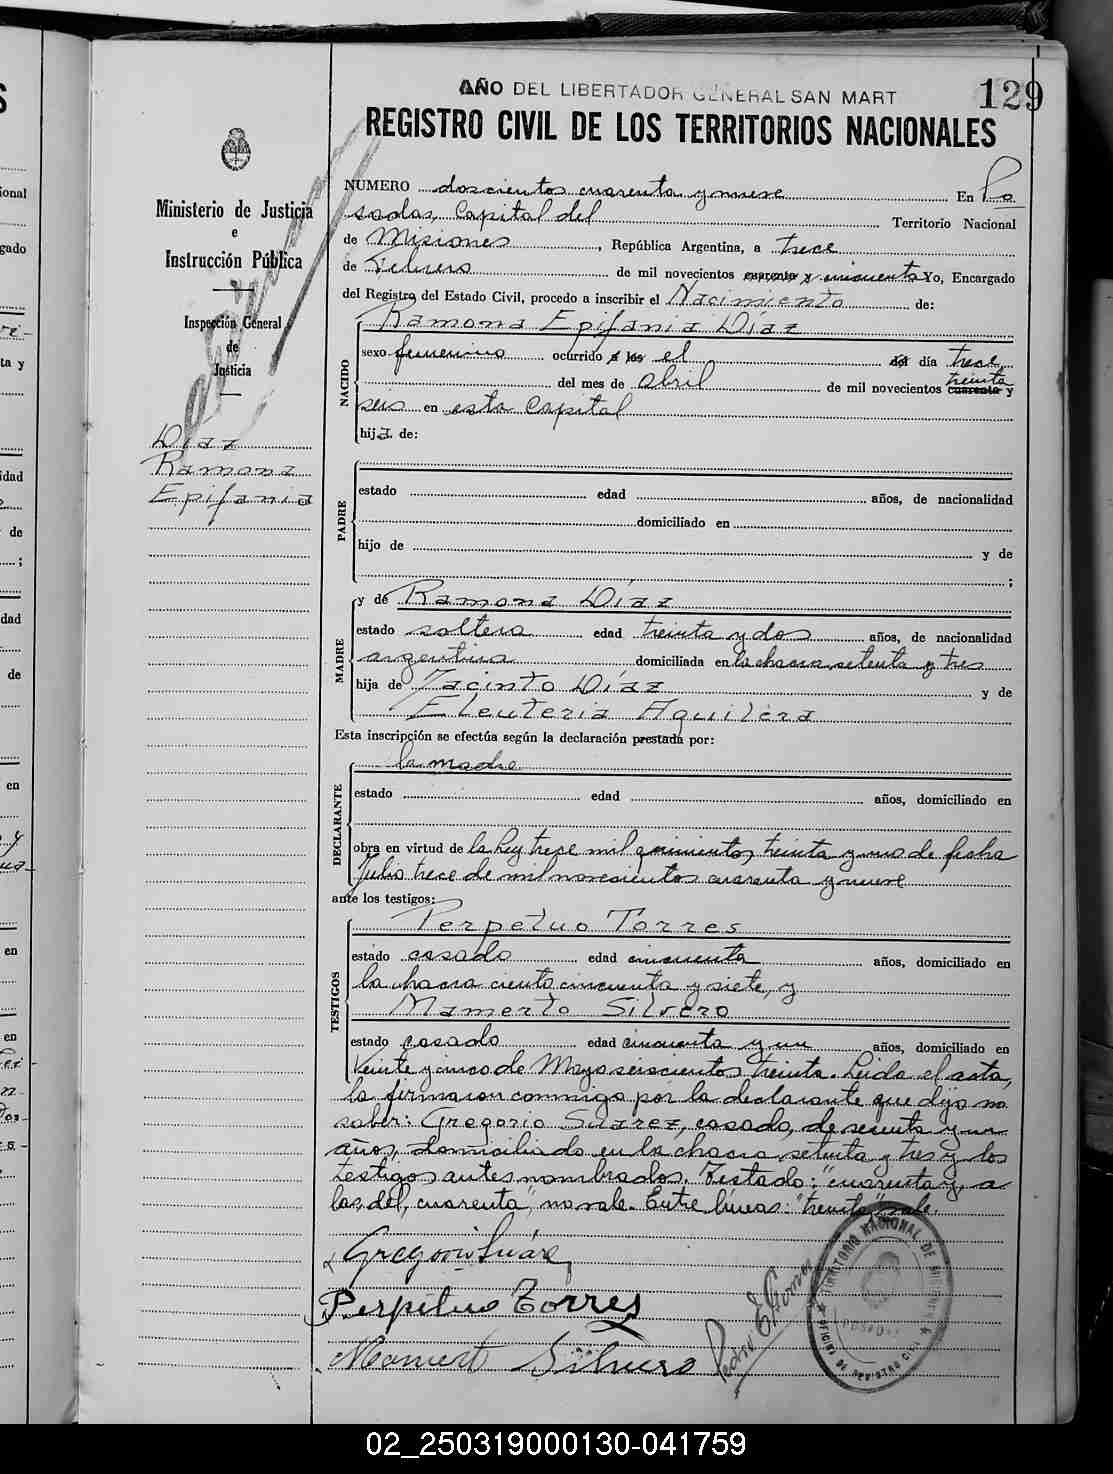 AÑO DEL LIBERTADOR GENERAL SAN MART
129
REGISTRO CIVIL DE LOS TERRITORIOS NACIONALES
Ministerio de Justicia
e
Instrucción Pública
Inspección General
de
Justicia
Díaz
Ramona
Epifania
NUMERO doscientos cuarenta y nueve En Po
sadas, Capital del Territorio Nacional
de Misiones, República Argentina, a trece
de Febrero de mil novecientos cuarenta y cincuenta Yo, Encargado
del Registro del Estado Civil, procedo a inscribir el Nacimiento de:
Ramona Epifania Díaz
NACIDO
sexo femenino ocurrido a las el del día trece
treinta
del mes de abril de mil novecientos cuarenta y
seis en esta Capital
hija de:
PADRE
estado edad años, de nacionalidad
domiciliado en
hijo de y de
;
MADRE
y de Ramona Díaz
estado soltera edad treinta y dos años, de nacionalidad
argentina domiciliada en la chacra setenta y tres
hija de Jacinto Díaz y de
Eleuteria Aguilera
Esta inscripción se efectúa según la declaración prestada por:
DECLARANTE
la madre
estado edad años, domiciliado en
obra en virtud de la ley trece mil quinientos treinta y uno de fecha
Julio trece de mil novecientos cuarenta y nueve
ante los testigos:
TESTIGOS
Perpetuo Torres
estado casado edad cincuenta años, domiciliado en
la chacra ciento cincuenta y siete, y
Mamerto Silvero
estado casado edad cincuenta y un años, domiciliado en
Veinte y cinco de Mayo seiscientos treinta. Leida el acta,
la firmaron conmigo por la declarante que dijo no
saber: Gregorio Suarez, casado, de sesenta y un
años, domiciliado en la chacra setenta y tres y los
testigos antes nombrados. Testado: "cuarenta y, a
las, del, cuarenta", no vale. Entre líneas: "treinta" vale.
Gregorio Suárez
Perpetuo Torres
Mamerto Silvero
TERRITORIO NACIONAL DE MISIONES
OFICINA DE REGISTRO CIVIL
POSADAS
02_250319000130-041759